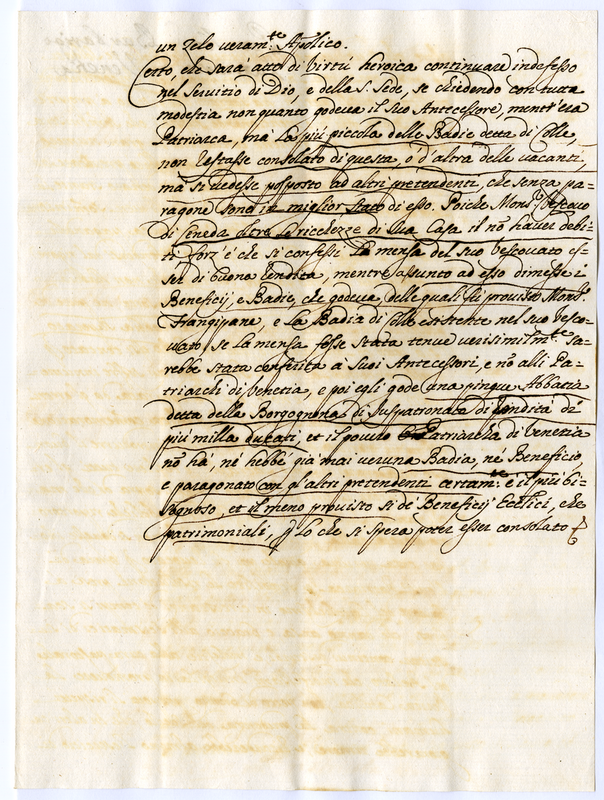 un zelo veram.te Ap̃lico.
Certo, che sarà atto di virtù heroica continuare indefesso
nel servitio di Dio, e della S. Sede, se chiedendo con tutta
modestia non quanto godeva il suo Antecessore, mentr'era
Patriarca, mà la più piccola delle Badie detta di Colle,
non restasse consolato di questa, ò d'altra delle vacanti,
mà si vedesse posposto ad altri pretendenti, che senza pa-
ragone sono in miglior stato di esso. Poiche Mons.r Vescovo
di Ceneda oltre le ricchezze di sua Casa il nõ haver debi-
ti forz' è che si confessi la mensa del suo Vescovato es-
ser di buona rendita, mentre assunto ad esso dimesse i
Beneficij, e Badie, che godeva, delle quali fù provisto Mons.r
Frangipane, e la Badia di Colle esistente nel suo Vesco-
vato se la mensa fosse stata tenue verisimilm.te sa-
rebbe stata conferita à suoi Antecessori, e nõ alli Pa-
triarchi di Venetia, e poi egli gode una pingue Abbatia
detta della Borgognona di Juspatronato di rendita di
più milla ducati, et il povero Patriarcha di Venetia
nõ hà, nè hebbe già mai veruna Badia, nè Beneficio,
e paragonato con gl'altri pretendenti certam.te è il più bi-
sognoso, et il meno provisto sì de Beneficij Ecc̃lici, che
patrimoniali, p lo che si spera poter esser consolato